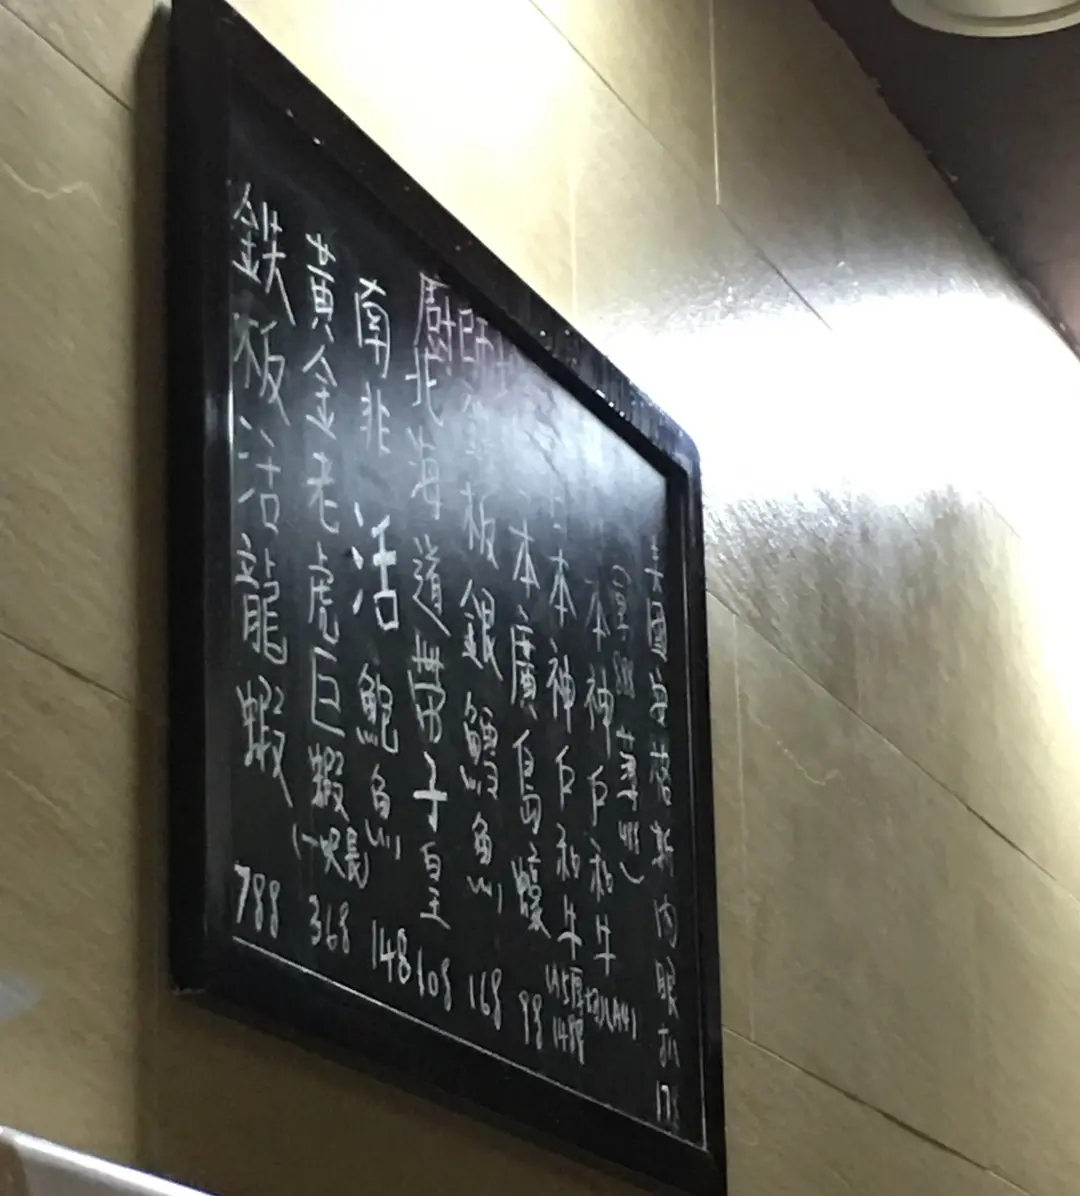 廚師
美國安格斯肉眼扒 17
(厚燒 薄燒)
本神戶和牛 (A4)
日本神戶和牛 (A5厚切) 1488
本廣島蠔 98
板銀鱈魚 168
北海道帶子皇 108
南非活鮑魚 148
黃金老虎巨蝦 (一呎長) 368
鉄板活龍蝦 788